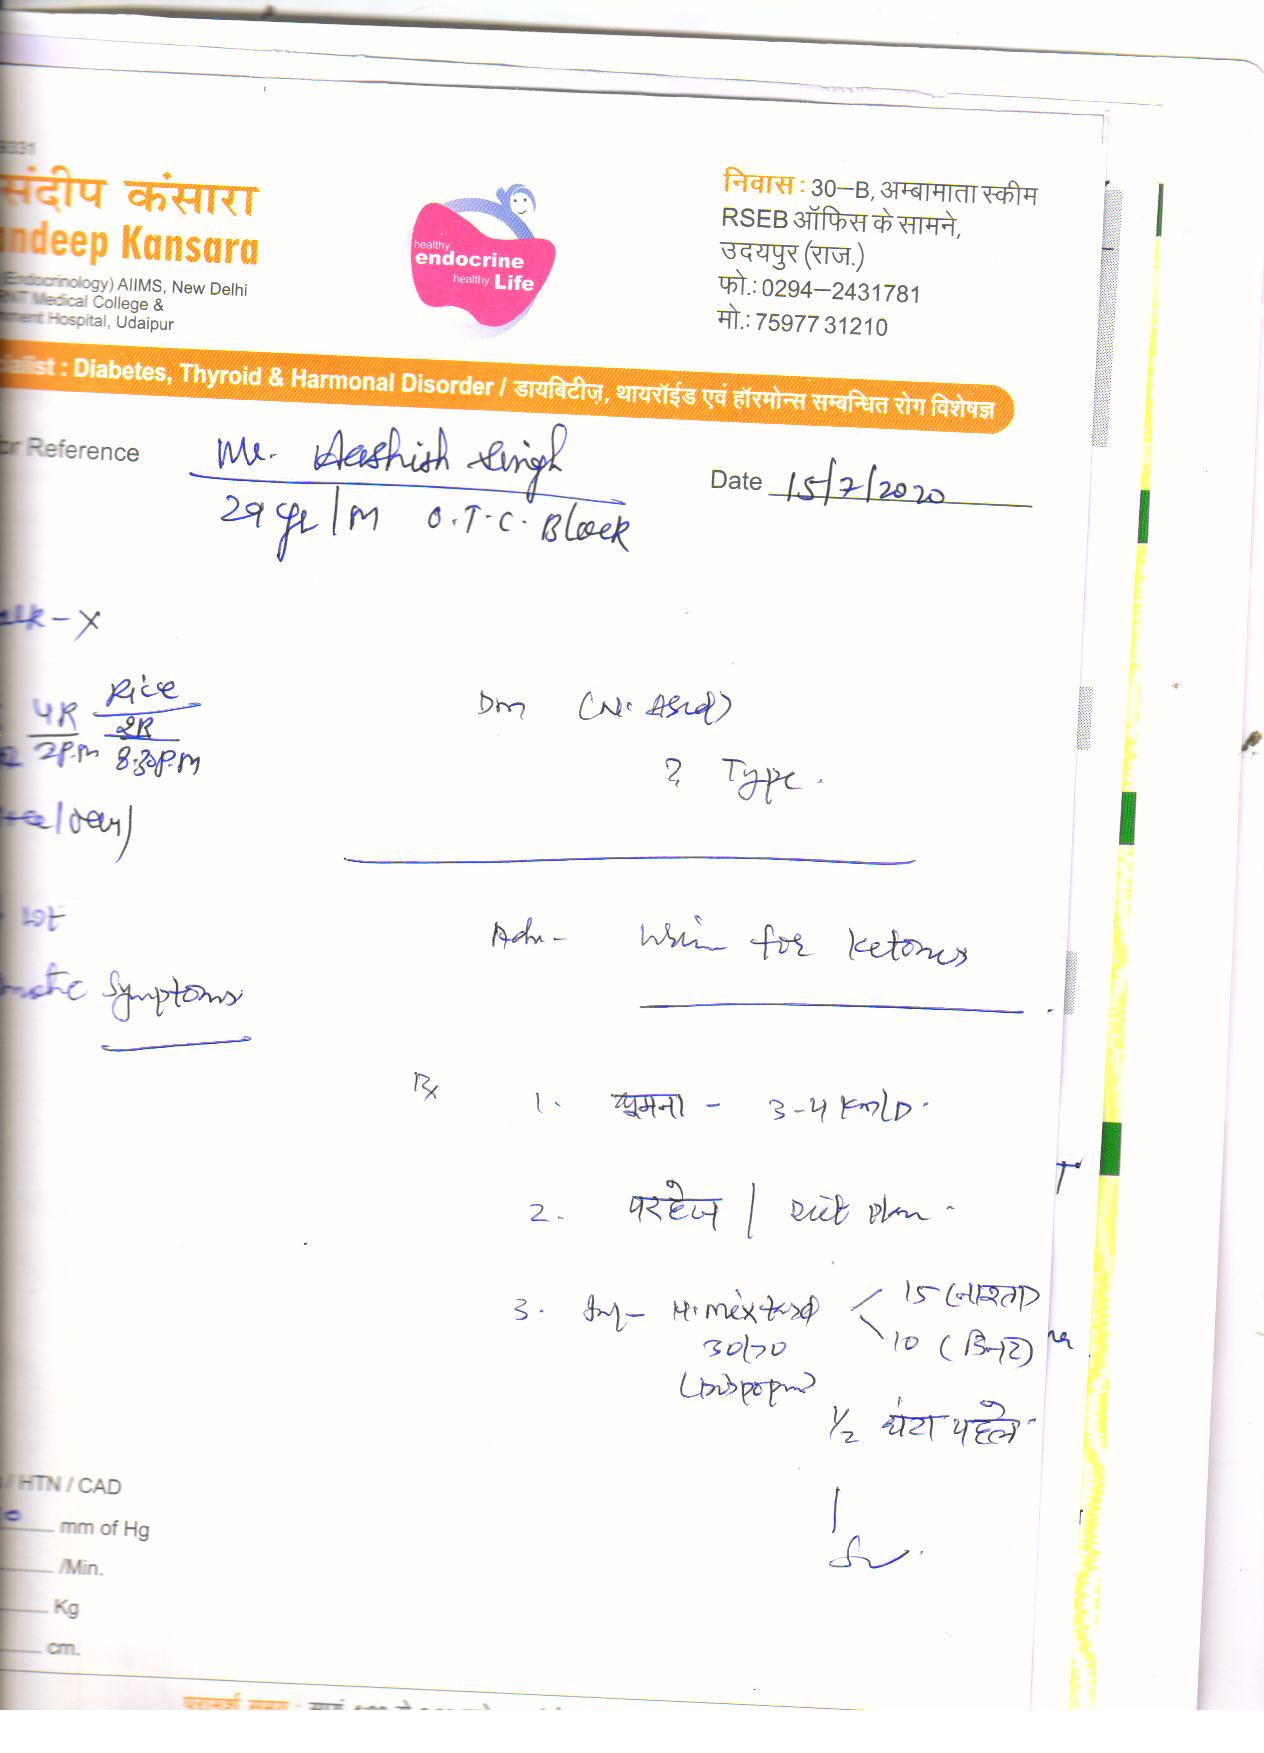 9331
संदीप कंसारा
ndeep Kansara
(Endocrinology) AIIMS, New Delhi
RNT Medical College &
nment Hospital, Udaipur
healthy
endocrine
healthy Life
निवास : 30–B, अम्बामाता स्कीम
RSEB ऑफिस के सामने,
उदयपुर (राज.)
फो.: 0294–2431781
मो.: 75977 31210
ialist : Diabetes, Thyroid & Harmonal Disorder / डायबिटीज़, थायरॉईड एवं हॉरमोन्स सम्बन्धित रोग विशेषज्ञ
or Reference Mr. Aashish Singh
Date 15/7/2020
29 yr/M O.T.C. Block
alk - X
Rice
4R 2R
2P.M 8:30P.M
Dm
? Type.
Symptoms
Adv - for Ketones
Rx
1. घूमना - 3-4 Km/D.
2. परहेज / Diet plan -
3. Inj - H. mixtard 15 (नाश्ता)
30/70 10 (डिनर)
1/2 घंटा पहले
/ HTN / CAD
mm of Hg
/Min.
Kg
cm.
परामर्श समय :